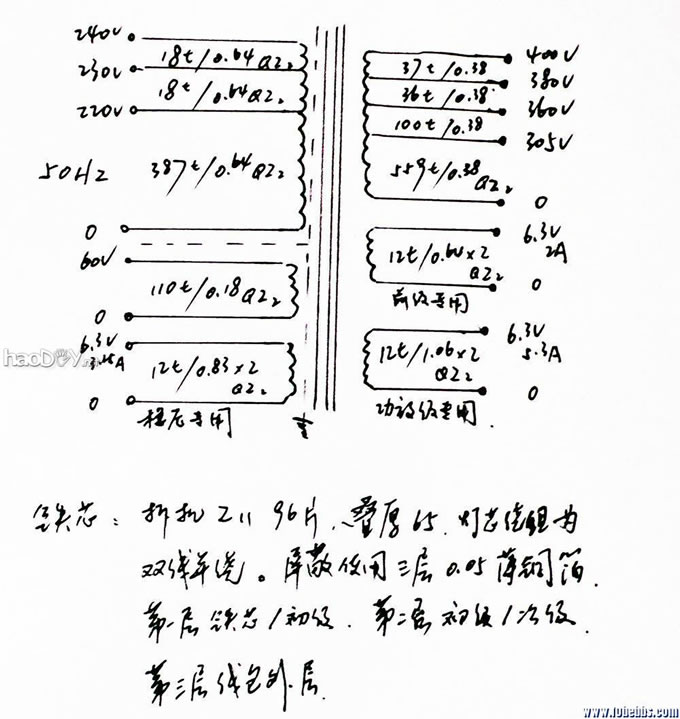 240V
18t/0.64 QZ₂
230V
18t/0.64 QZ₂
220V
50HZ
387t/0.64 QZ₂
0
60V
110t/0.18 QZ₂
0
6.3V
A
12t/0.83×2
QZ₂
0
稳压专用
400V
37t/0.38
380V
36t/0.38
360V
100t/0.38
305V
559t/0.38
QZ₂
0
6.3V
2A
12t/0.64×2
QZ₂
0
前级专用
6.3V
5.3A
12t/1.06×2
QZ₂
0
功放级专用
铁芯: 拆机Z11 96片、叠厚65. 灯芯绕组为
双线并绕。屏蔽使用三层0.05薄铜箔.
第一层铁芯/初级. 第二层初级/次级.
第三层线包外层.
haoDIY
www.iohebbs.com